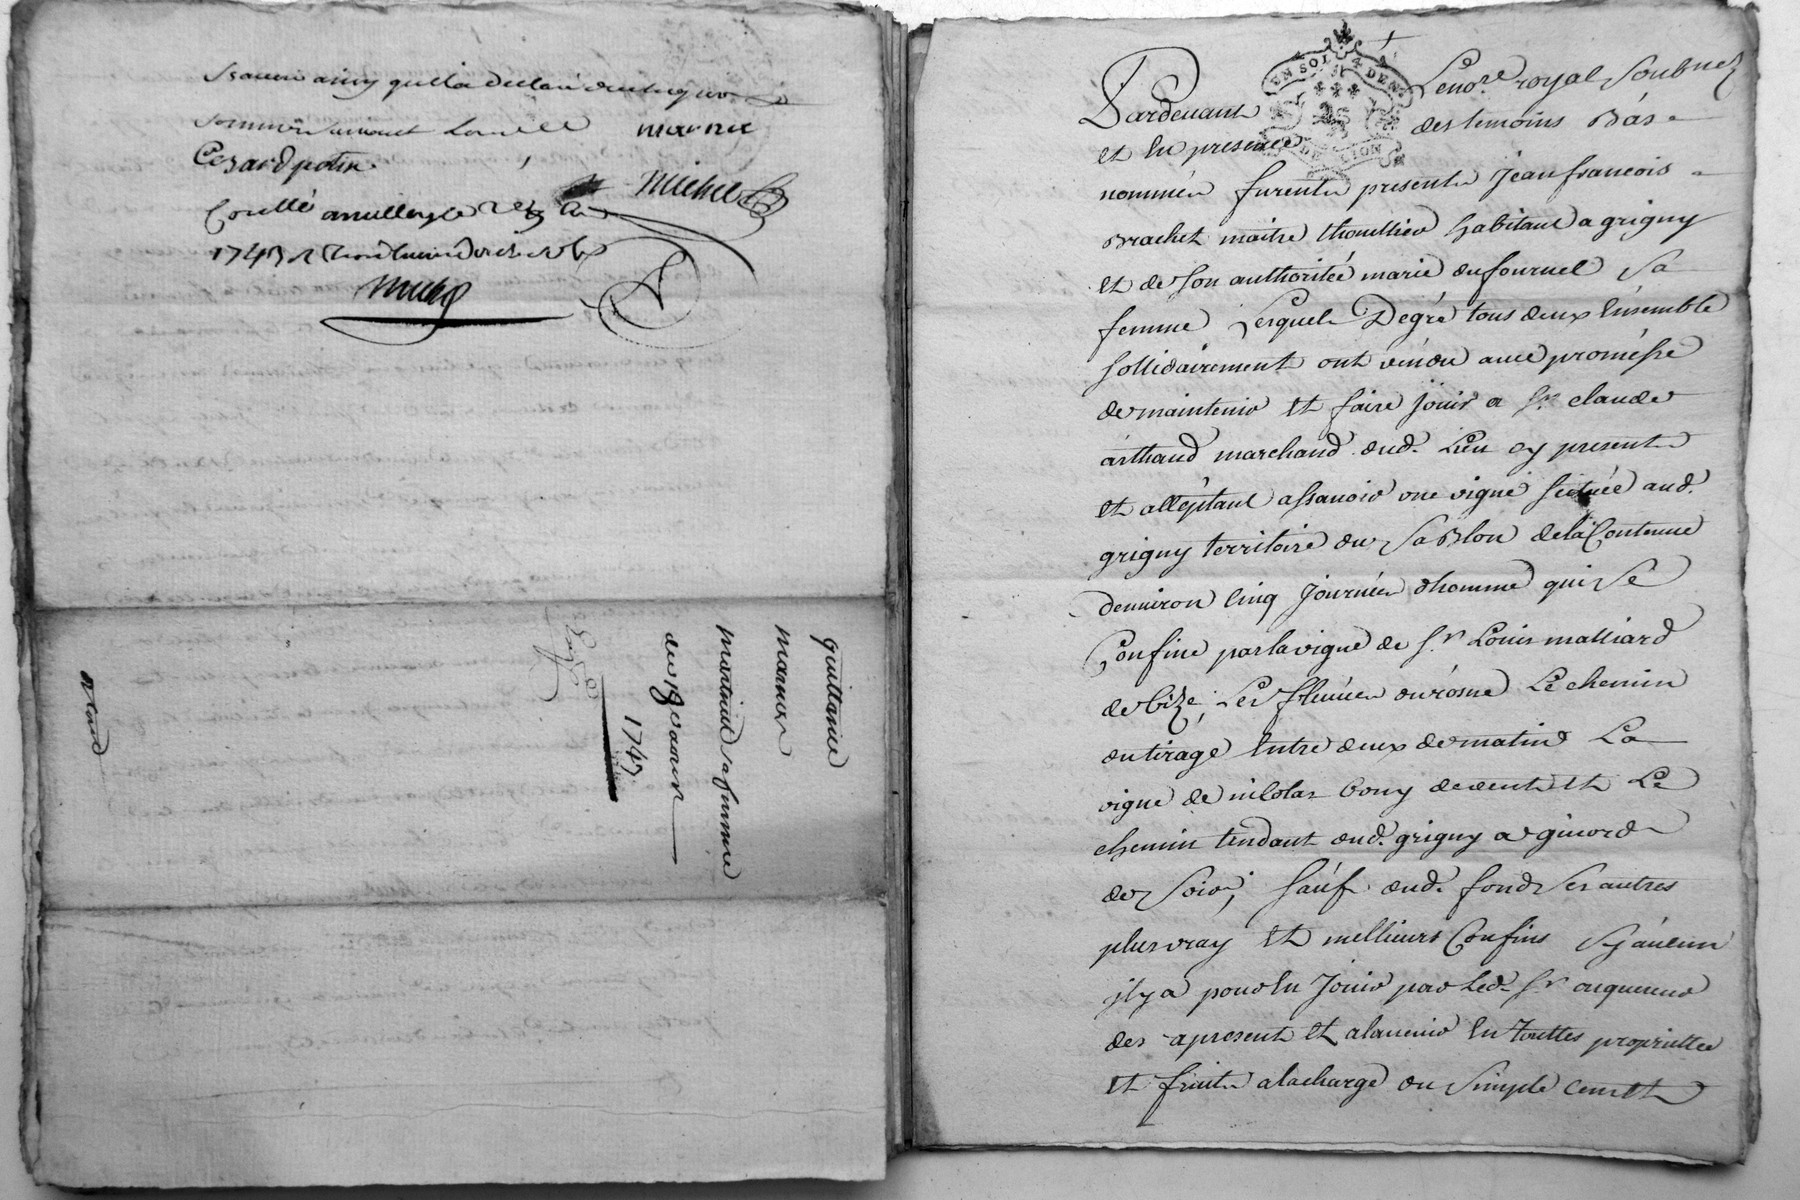 Scavoir ainsy quil a declaré de ce enquis
sommé
marnie
Cezard potin
Michel
Conttle a millery le
1743
Michel
Quittance
marnas
martinat sa femme
du 18 janvier
1743
UN SOL 4 DEN.
Pardevant Le no.re royal soubnez
et En presence des temoins Bas
nommés furent presents Jean francois
Brachet maitre thouillier habitant a grigny
et de son authoritéé marie dufournel sa
femme Lesquels Dégré tous deux Ensemble
sollidairement ont véndu avec promésse
de maintenir et faire Joüir a Sr. claude
arthaud marchand dud. Lieu cy present
et acceptant assavoir une vigne scituéé aud.
grigny territoire du Sablon de la Contenue
denviron Cinq Journéés dhomme qui Se
Confine par la vigne de Sr. Louis malliard
de bize, Les fleuve du rósne Le chemin
du tirage Entre deux de matin La
vigne de nicolas bony de vent Et Le
chemin tendant dud. grigny a givord
de Soir, Saúf dud. fonds Ses autres
plus vray Et meilleurs Confins Sy aucun
il y a pour En Joüir par Led. Sr. acquereur
des apresent Et alavenir En Touttes proprietéé
et fruits alacharge du Simple Cens Et